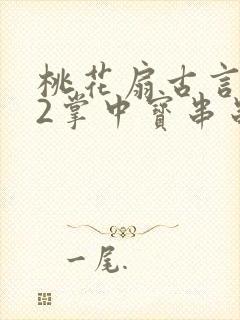 桃花扇古言
2掌中寳串
一尾.